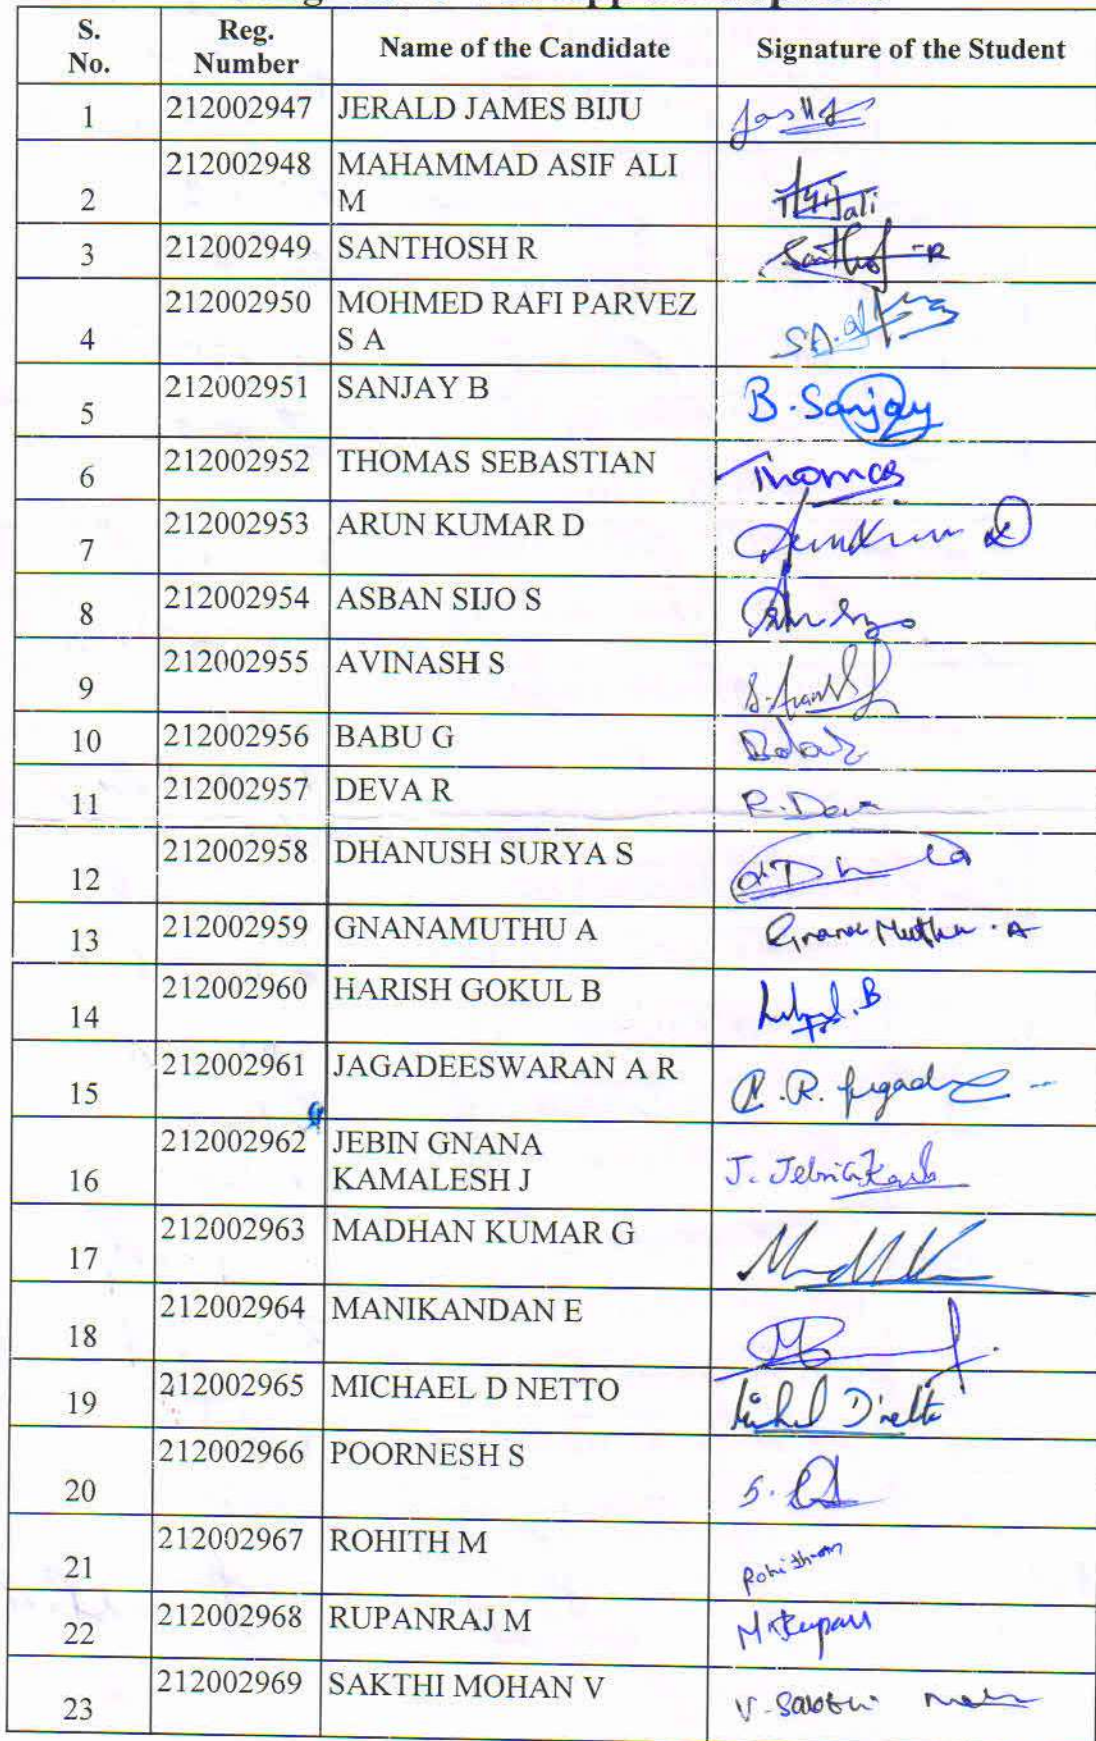 S. No. Reg. Number Name of the Candidate Signature of the Student
1 212002947 JERALD JAMES BIJU
2 212002948 MAHAMMAD ASIF ALI M
3 212002949 SANTHOSH R Santhosh -R
4 212002950 MOHMED RAFI PARVEZ S A S.A.
5 212002951 SANJAY B B. Sanjay
6 212002952 THOMAS SEBASTIAN Thomas
7 212002953 ARUN KUMAR D
8 212002954 ASBAN SIJO S
9 212002955 AVINASH S
10 212002956 BABU G
11 212002957 DEVA R R. Deva
12 212002958 DHANUSH SURYA S
13 212002959 GNANAMUTHU A Gnana Muthu . A
14 212002960 HARISH GOKUL B
15 212002961 JAGADEESWARAN A R
16 212002962 JEBIN GNANA KAMALESH J
17 212002963 MADHAN KUMAR G
18 212002964 MANIKANDAN E
19 212002965 MICHAEL D NETTO
20 212002966 POORNESH S
21 212002967 ROHITH M
22 212002968 RUPANRAJ M
23 212002969 SAKTHI MOHAN V